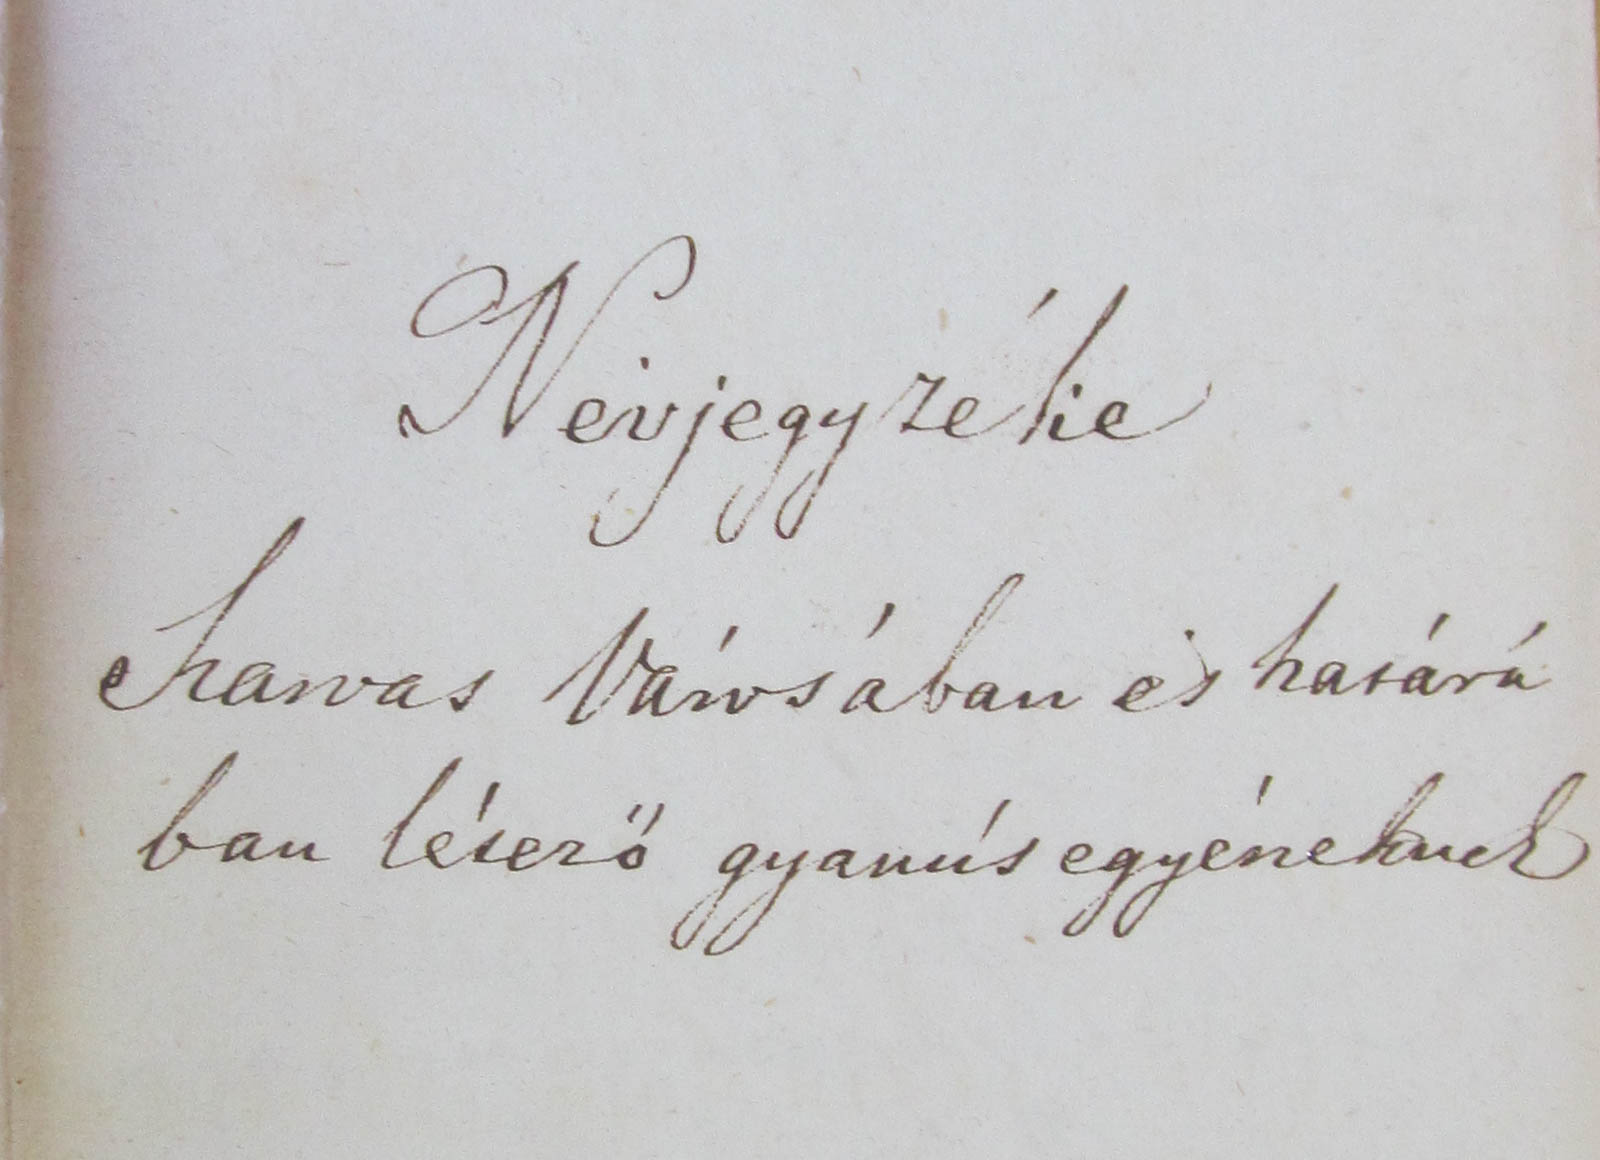 Névjegyzéke
Szarvas Városában és határá
ban létező gyanús egyéneknek